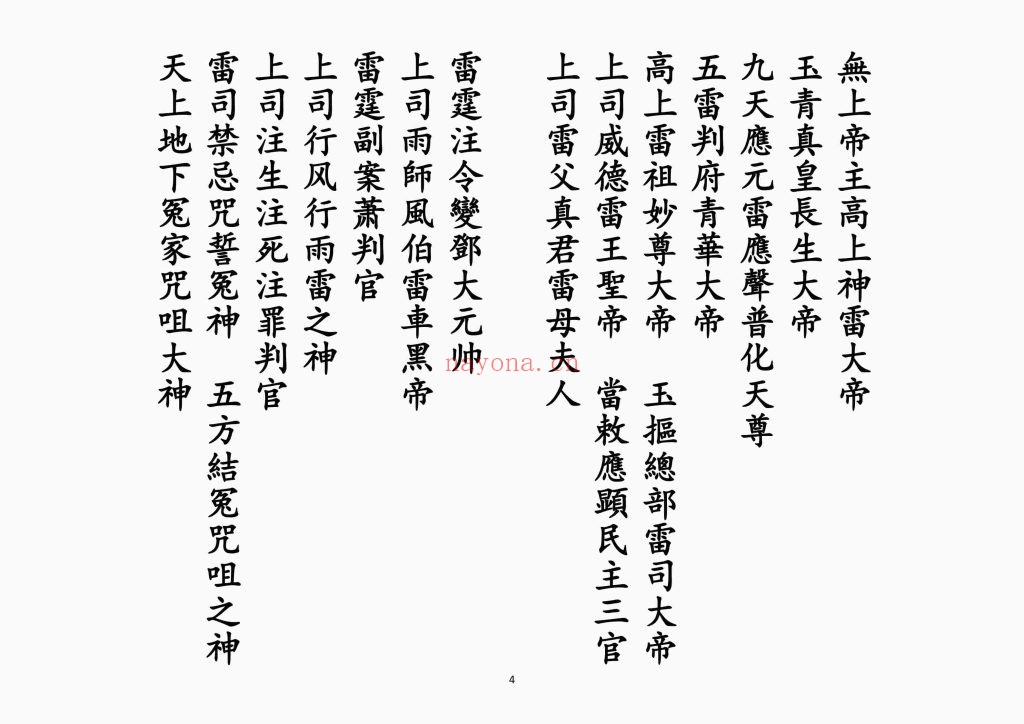 無上帝主高上神雷大帝
玉青真皇長生大帝
九天應元雷應聲普化天尊
五雷判府青華大帝
高上雷祖妙尊大帝　玉摳總部雷司大帝
上司威德雷王聖帝　當敕應顯民主三官
上司雷父真君雷母夫人
雷霆注令變鄧大元帅
上司雨師風伯雷車黑帝
雷霆副案萧判官
上司行风行雨雷之神
上司注生注死注罪判官
雷司禁忌咒誓冤神　五方結冤咒咀之神
天上地下冤家咒咀大神
nayona.cn
4